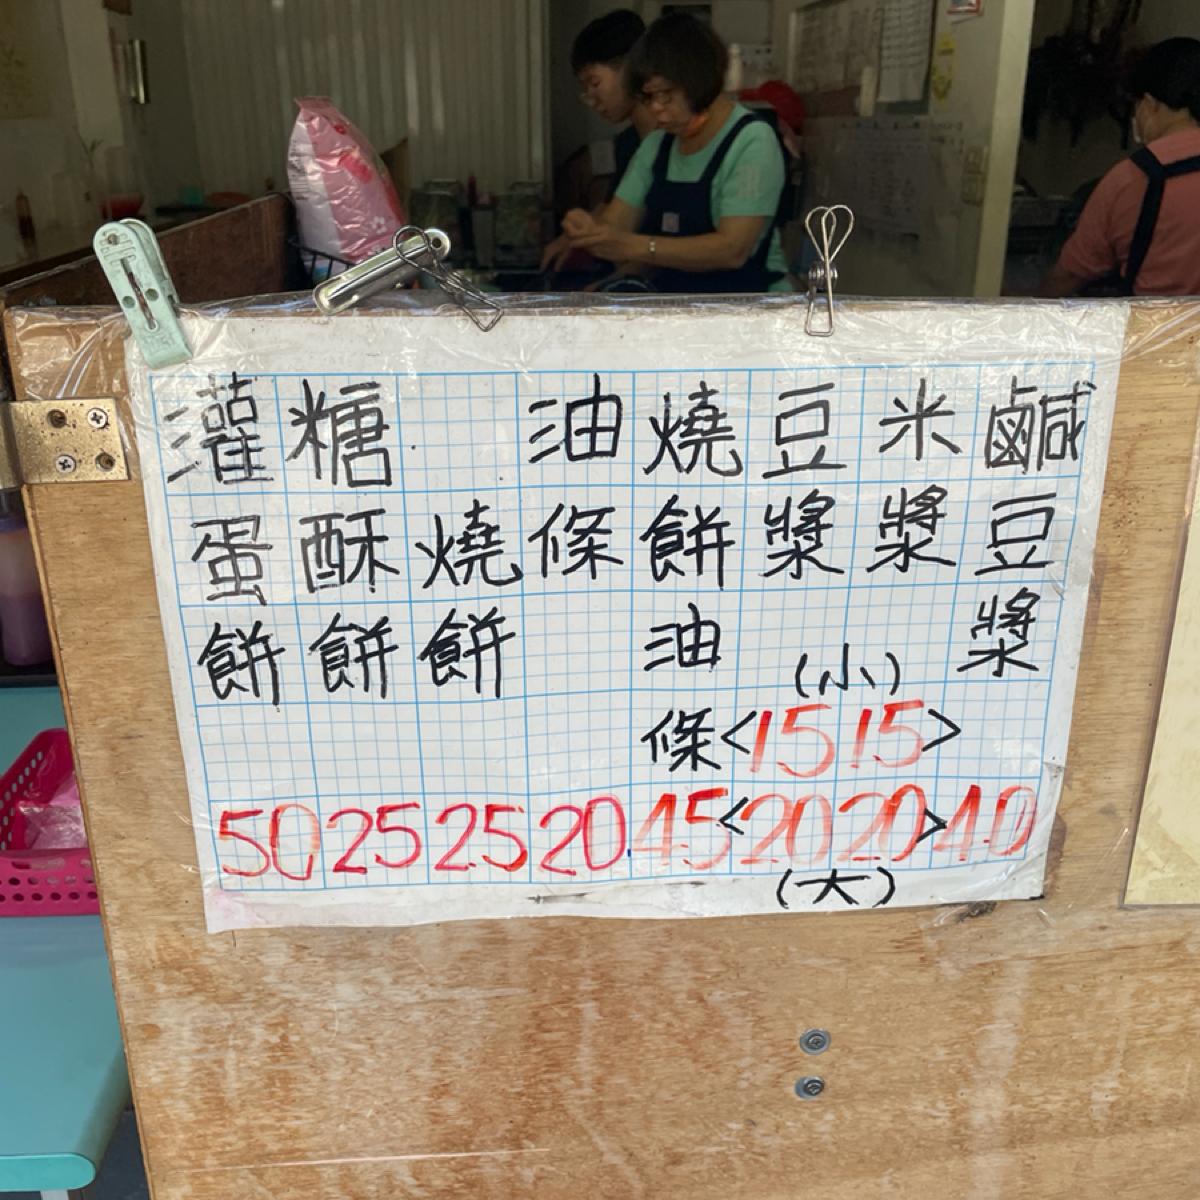 鹹豆漿 40
米漿 (小) 15> 20> (大)
豆漿 <15 <20
燒餅油條 45
油條 20
燒餅 25
糖酥餅 25
灌蛋餅 50